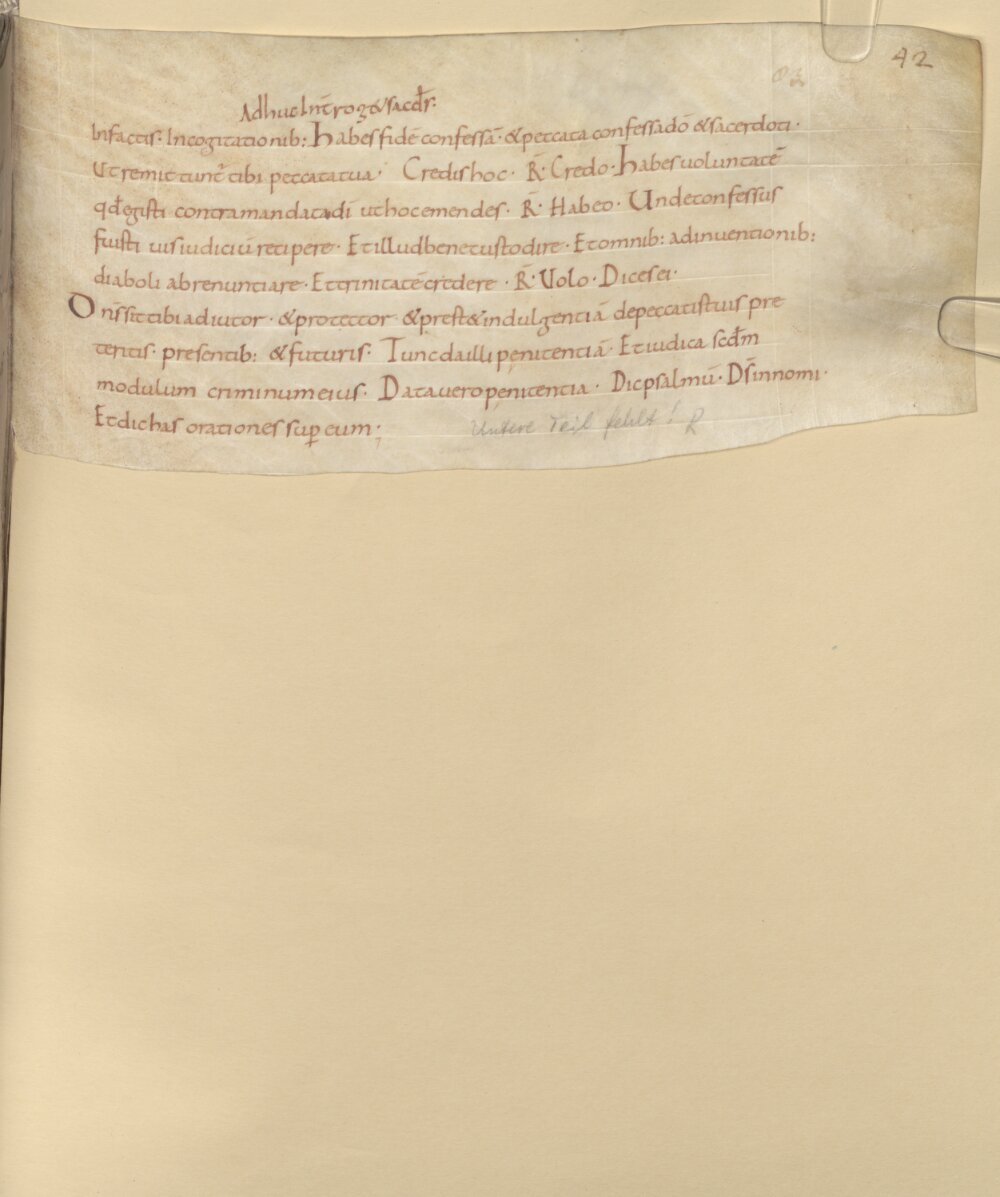 42
Adhuc Int̄rog& sacd̄r:
In factis. In cogitationib: habes fidē confessā. & peccata confessa dō & sacerdoti.
Ut remittunt̄ tibi peccata tua. Credis hoc. R̄. Credo. habes voluntatē
qđ egisti contra mandata dī ut hoc emendes. R̄. Habeo. Unde confessus
fuisti vis iudiciū recipere. Et illud bene custodire. Et omnib: adinventionib:
diaboli abrenuntiare. Et trinitatē credere. R̄. Volo. Dices ei.
Dn̄s sit tibi adiutor. & protector & prest& indulgentiā de peccatis tuis pre
teritis. presentib: & futuris. Tunc da illi penitentiā. Et iudica scđm
modulum criminum eius. Data vero penitentia. Dic psalmū. Ds̄ in nomi.
Et dic has orationes sup̱ eum;
Untere Teil fehlt! R